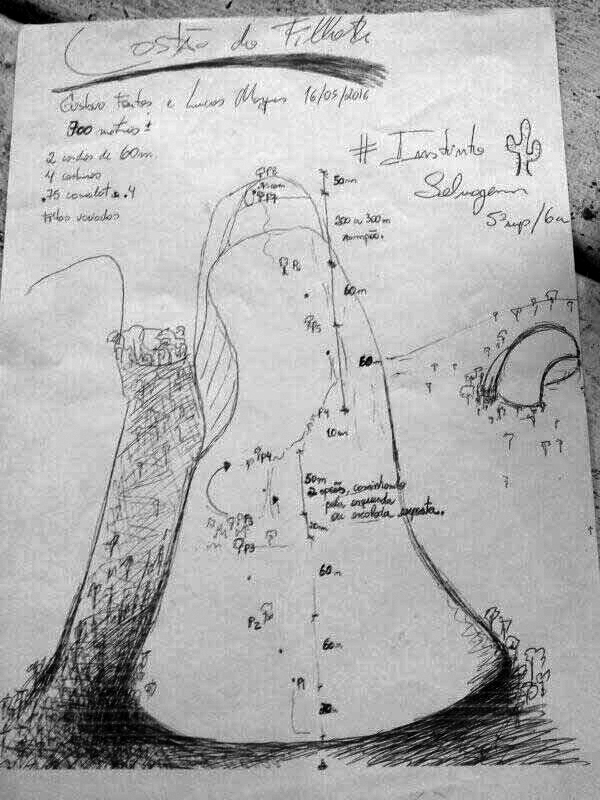 Costão do Filhote
Gustavo Fontes e Lucas Marques 16/05/2016
700 metros ±
2 cordas de 60m
4 costuras
.75 camalot e .4
fitas variadas
# Instinto
Selvagem
5º sup/6a
P8
50m
P7
200 a 300m
P6
60m
P5
60m
P4
10m
P4
50m
2 opções, caminhando
pela esquerda
ou escalada exposta.
P3
20m
P3
60m
P2
60m
P1